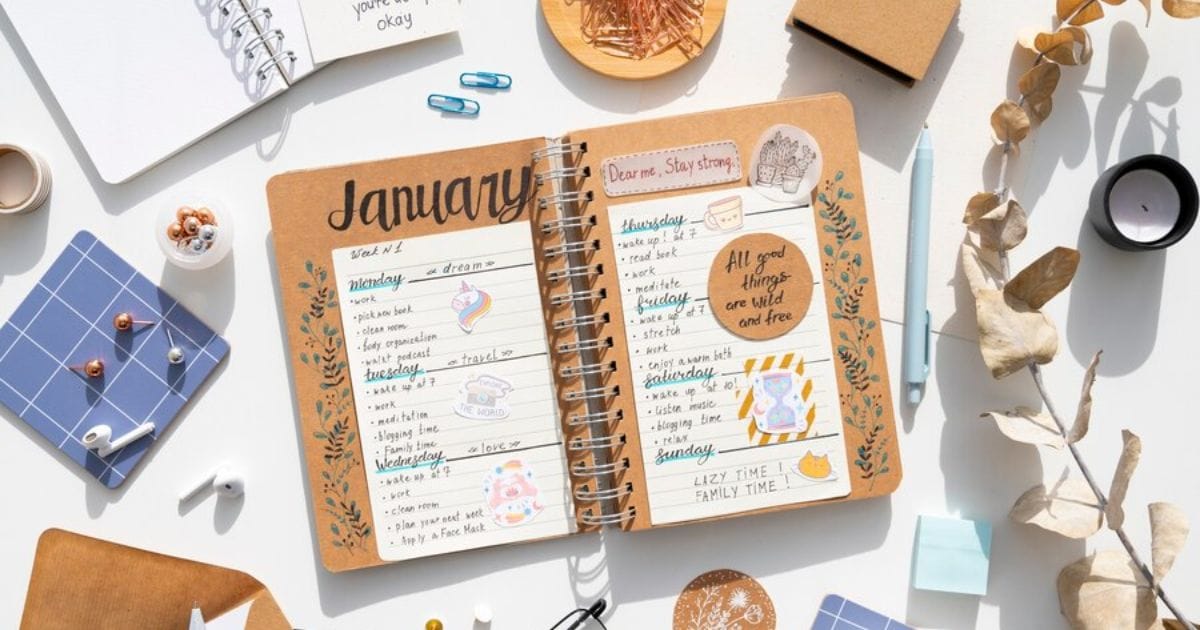 you're
okay
January
Week N1
monday
« dream »
• work
• pick new book
• clean room
• body organization
• walk+ podcast
tuesday
« travel »
• wake up at 7
• work
• meditation
• blogging time
• Family time
Wednesday
« love »
• wake up at 7
• work
• clean room
• plan your next week
• Apply a Face Mask
THE WORLD
Dear me, Stay strong.
thursday
• wake up! at 7
• read book
• work
• meditate
friday
• wake up at 7
• stretch
• work
• enjoy a warm bath
saturday
• wake up at 10!
• listen music
• blogging time
• relax
sunday
LAZY TIME!
FAMILY TIME!
All good
things
are wild
and free